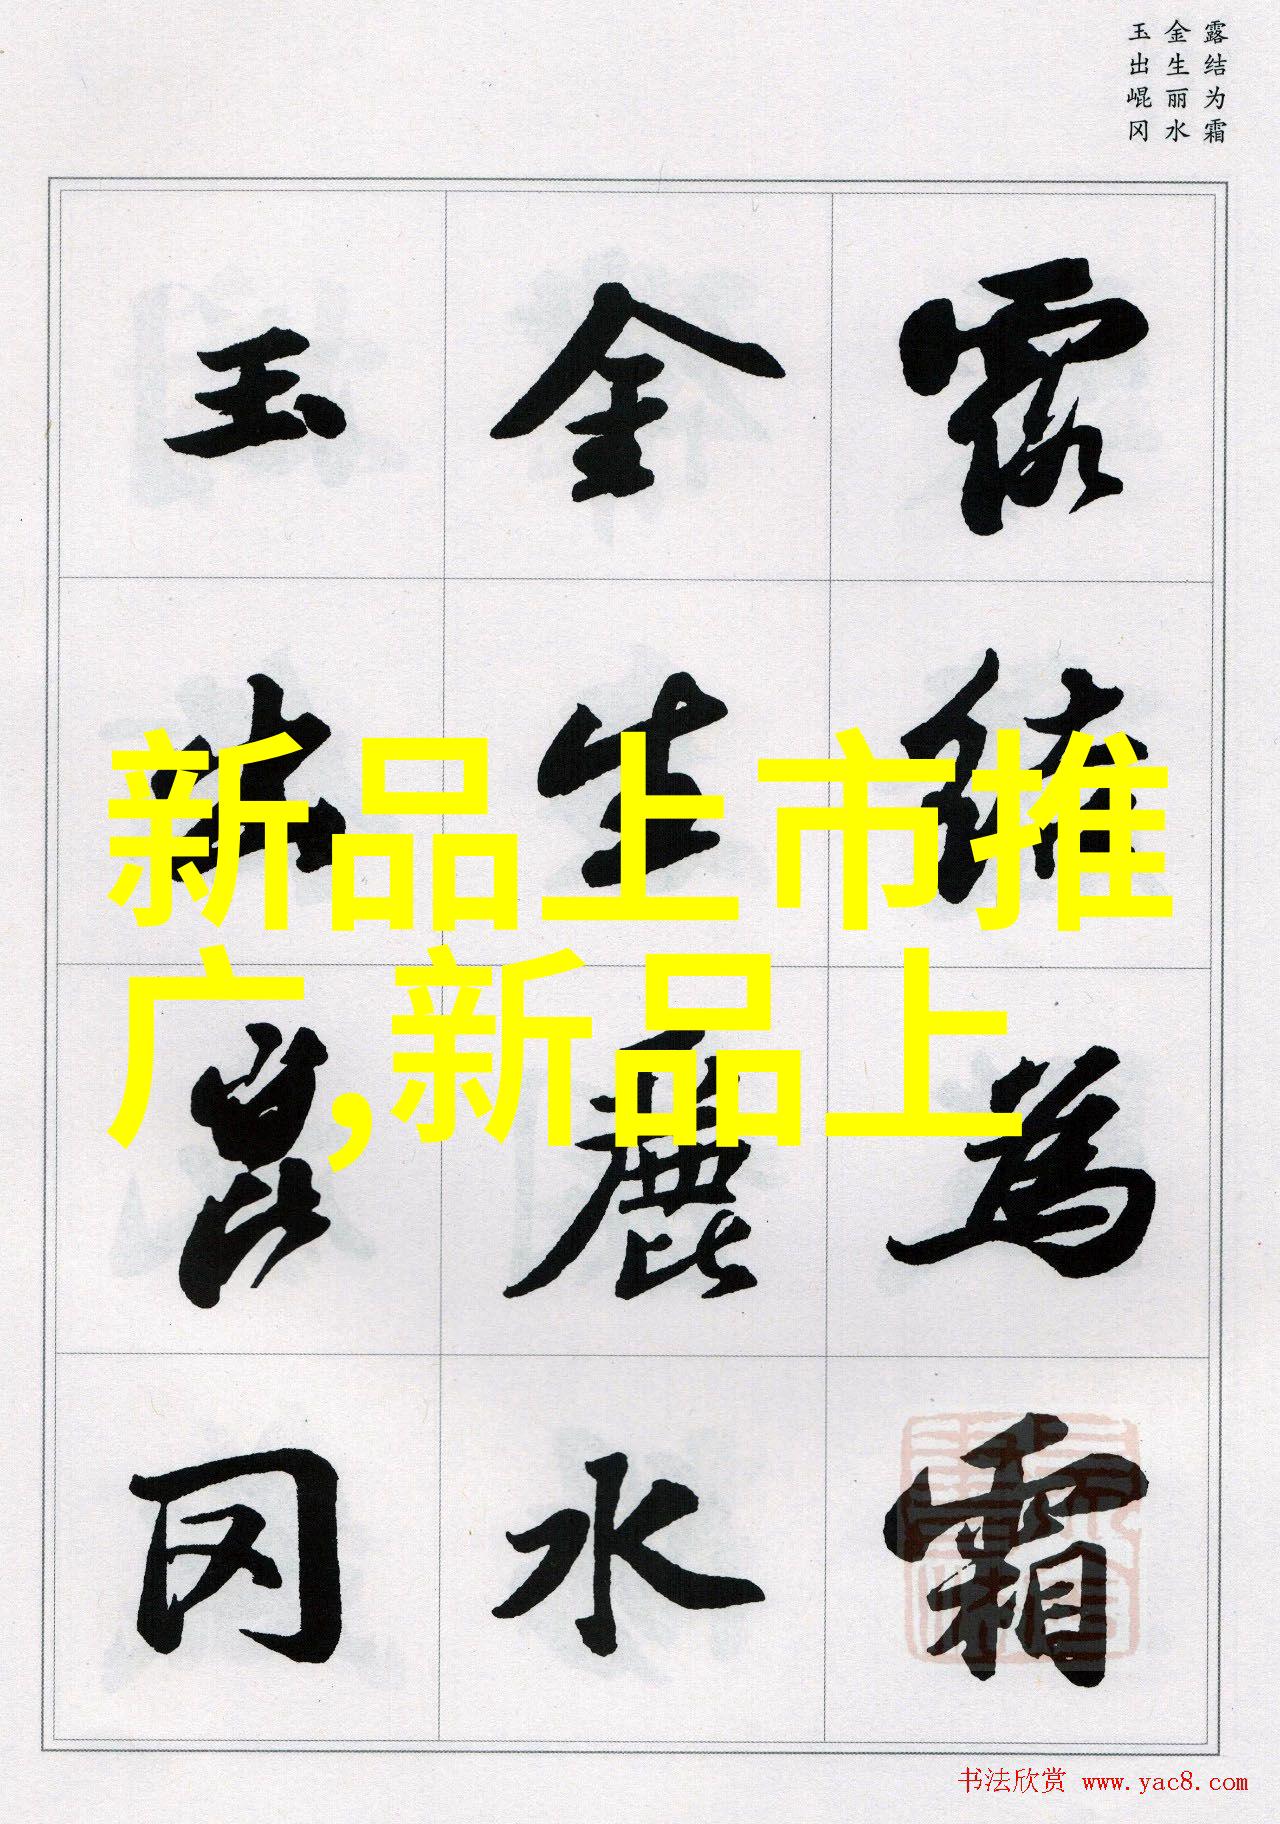 露结为霜
金生丽水
玉出崐冈
露結為霜
金生麗水
玉出崑冈
新品上市推
广,新品上
书法欣赏 www.yac8.com